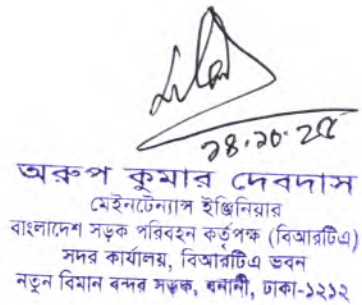 ২৪.১০.২৫
অরুপ কুমার দেবদাস
মেইনটেন্যান্স ইঞ্জিনিয়ার
বাংলাদেশ সড়ক পরিবহন কর্তৃপক্ষ (বিআরটিএ)
সদর কার্যালয়, বিআরটিএ ভবন
নতুন বিমান বন্দর সড়ক, বনানী, ঢাকা-১২১২